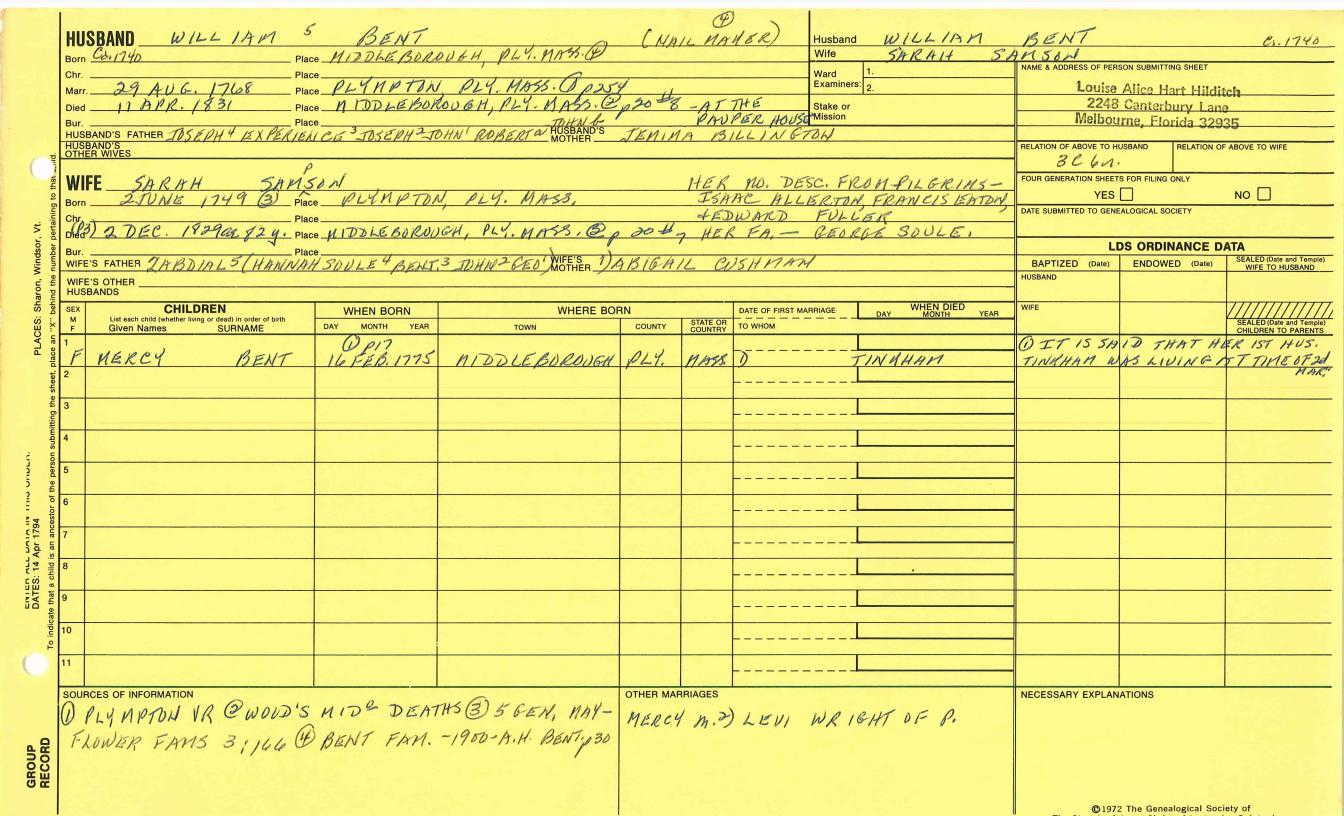 ④
HUSBAND WILLIAM 5 BENT (NAIL MAKER)
Born Ca.1740 Place MIDDLEBOROUGH, PLY. MASS. ④
Chr. Place
Marr. 29 AUG. 1768 Place PLYMPTON, PLY. MASS. ① p254
Died 11 APR. 1831 Place MIDDLEBOROUGH, PLY. MASS. ② p20 #8 -AT THE
Bur. Place PAUPER HOUSE
JOHN &
HUSBAND'S FATHER JOSEPH 4 EXPERIENCE 3 JOSEPH 2 JOHN 1 ROBERT HUSBAND'S MOTHER JEMIMA BILLINGTON
HUSBAND'S OTHER WIVES
Husband WILLIAM BENT Ca.1740
Wife SARAH SAMSON
Ward Examiners: 1.
2.
Stake or Mission
NAME & ADDRESS OF PERSON SUBMITTING SHEET
Louise Alice Hart Hilditch
2248 Canterbury Lane
Melbourne, Florida 32935
RELATION OF ABOVE TO HUSBAND RELATION OF ABOVE TO WIFE
3C 6r.
FOUR GENERATION SHEETS FOR FILING ONLY
YES NO
DATE SUBMITTED TO GENEALOGICAL SOCIETY
P
WIFE SARAH SAMSON HER MO. DESC. FROM PILGRIMS-
Born 2 JUNE 1749 ③ Place PLYMPTON, PLY. MASS. ISAAC ALLERTON, FRANCIS EATON,
Chr. Place + EDWARD FULLER
Died 2 DEC. 1829 ae 82y. Place MIDDLEBOROUGH, PLY. MASS. ② p 20 #7 HER FA. - GEORGE SOULE.
Bur. Place
WIFE'S FATHER ZABDIAL 5 (HANNAH SOULE 4 BENJ. 3 JOHN 2 GEO 1) WIFE'S MOTHER 1) ABIGAIL CUSHMAN
WIFE'S OTHER HUSBANDS
LDS ORDINANCE DATA
BAPTIZED (Date) ENDOWED (Date) SEALED (Date and Temple) WIFE TO HUSBAND
HUSBAND
WIFE
SEALED (Date and Temple) CHILDREN TO PARENTS
SEX M F
CHILDREN
List each child (whether living or dead) in order of birth
Given Names SURNAME
WHEN BORN
DAY MONTH YEAR
WHERE BORN
TOWN COUNTY STATE OR COUNTRY
DATE OF FIRST MARRIAGE
TO WHOM
WHEN DIED
DAY MONTH YEAR
① p17
1 F MERCY BENT 16 FEB. 1775 MIDDLEBOROUGH PLY. MASS D TINKHAM
① IT IS SAID THAT HER 1ST HUS.
TINKHAM WAS LIVING AT TIME OF 2d
MAR.
2
3
4
5
6
7
8
9
10
11
SOURCES OF INFORMATION
① PLYMPTON VR ② WOOD'S MIDD DEATHS ③ 5 GEN, MAY-
FLOWER FAMS 3:166 ④ BENT FAM. -1900-A.H. BENT p30
OTHER MARRIAGES
MERCY m. 2) LEVI WRIGHT OF P.
NECESSARY EXPLANATIONS
©1972 The Genealogical Society of
PLACES: Sharon, Windsor, Vt.
ENTER ALL DATA IN THIS ORDER:
DATES: 14 Apr 1794
To indicate that a child is an ancestor of the person submitting the sheet, place an "X" behind the number pertaining to that child.
GROUP RECORD